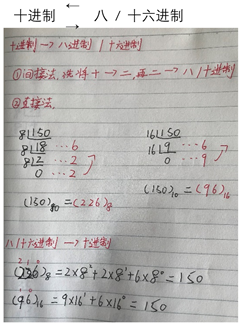 十进制 ← 八 / 十六进制
十进制 —> 八进制 / 十六进制
①间接法, 先将十→二, 再二→八/十六进制
②直接法,
8|150 16|150
8|18 …6 16|9 …6
8|2 …2 0 …9
0 …2 (150)₁₀ = (96)₁₆
(150)₁₀ = (226)₈
八/十六进制 —> 十进制
2 1 0
(226)₈ = 2×8² + 2×8¹ + 6×8⁰ = 150
1 0
(96)₁₆ = 9×16¹ + 6×16⁰ = 150